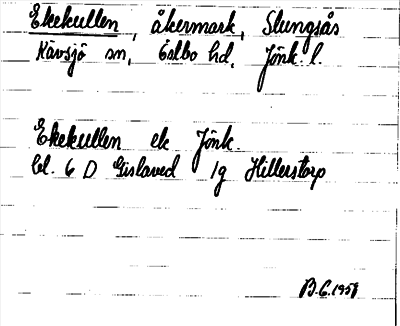 Ekekullen, åkermark, Slungsås
Kävsjö sn, Östbo hd, Jönk. l.
Ekekullen ek Jönk.
bl. 6 D Gislaved 1g Hillerstorp
B.G. 1958